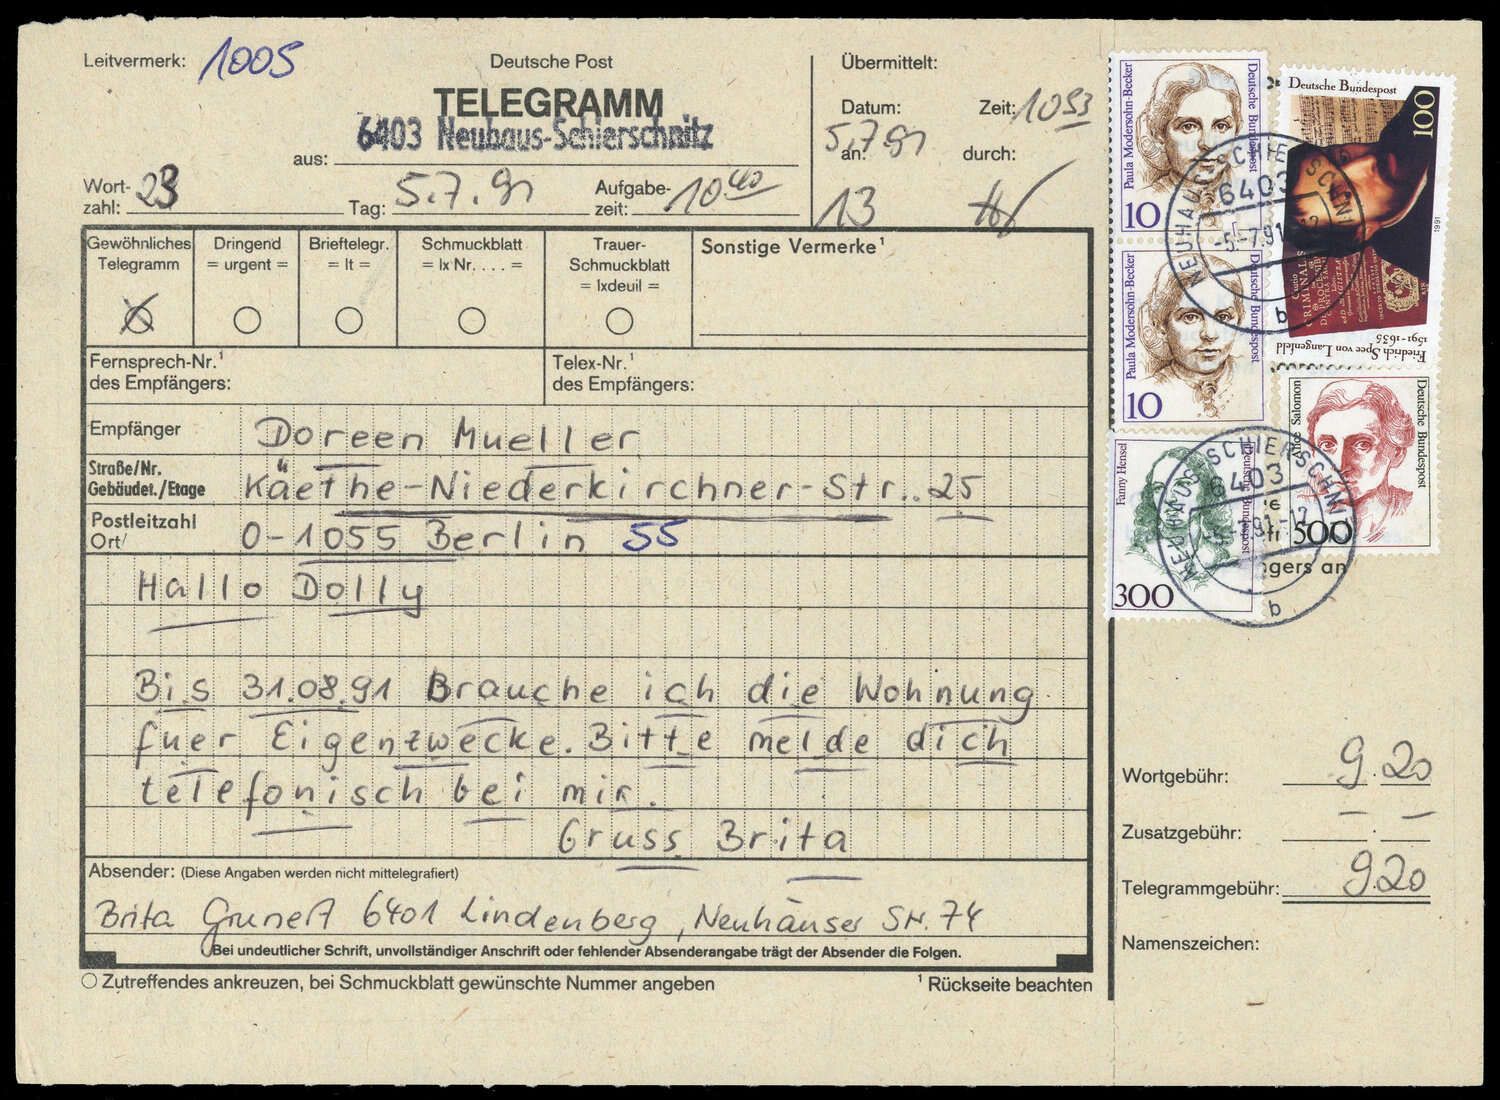 Leitvermerk: 1005
Deutsche Post
TELEGRAMM
aus: 6403 Neuhaus-Schierschnitz
Wort-
zahl: 23
Tag: 5.7.91
Aufgabe-
zeit: 10 40
Übermittelt:
Datum: 5.7.91
Zeit: 10 53
an: 13
durch:
Gewöhnliches
Telegramm
Dringend
= urgent =
Brieftelegr.
= lt =
Schmuckblatt
= lx Nr. . . . . =
Trauer-
Schmuckblatt
= lxdeuil =
Sonstige Vermerke¹
Fernsprech-Nr.¹
des Empfängers:
Telex-Nr.¹
des Empfängers:
Empfänger Doreen Mueller
Straße/Nr.
Gebäudet./Etage Käethe-Niederkirchner-Str.. 25
Postleitzahl
Ort/ O-1055 Berlin 55
Hallo Dolly
Bis 31.08.91 Brauche ich die Wohnung
fuer Eigenzwecke. Bitte melde dich
telefonisch bei mir.
Gruss Brita
Absender: (Diese Angaben werden nicht mittelegrafiert)
Brita Grunert 6401 Lindenberg, Neuhäuser Str. 74
Bei undeutlicher Schrift, unvollständiger Anschrift oder fehlender Absenderangabe trägt der Absender die Folgen.
Zutreffendes ankreuzen, bei Schmuckblatt gewünschte Nummer angeben
¹ Rückseite beachten
Paula Modersohn-Becker
Deutsche Bundespost
10
Paula Modersohn-Becker
Deutsche Bundespost
10
Deutsche Bundespost
100
1991
CRIMINALIS
Friedrich Spee von Langenfeld
1591-1635
Fanny Hensel
Deutsche Bundespost
300
Alice Salomon
Deutsche Bundespost
500
NEUHAUS-SCHIERSCHNITZ
6403
-5.-7.91-12
b
NEUHAUS-SCHIERSCHNITZ
6403
-5.-7.91-12
b
gers an
Wortgebühr: 9.20
Zusatzgebühr: — . —
Telegrammgebühr: 9.20
Namenszeichen: